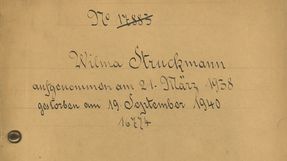 No 17883
Wilma Struckmann
aufgenommen am 21. März 1938
gestorben am 19 September 1940
16774